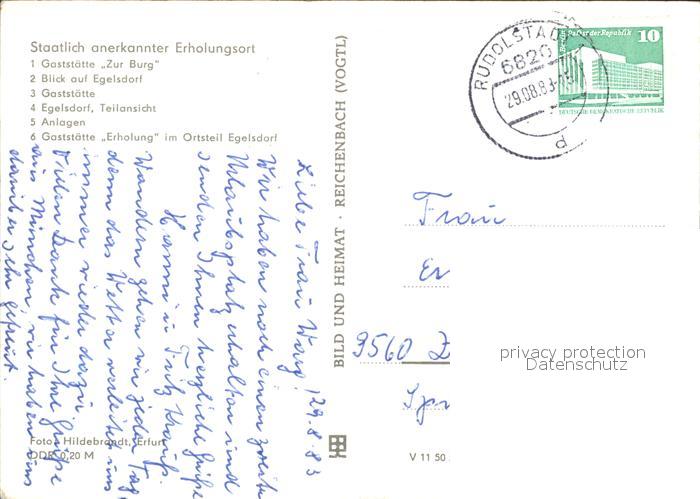 Staatlich anerkannter Erholungsort
1 Gaststätte „Zur Burg"
2 Blick auf Egelsdorf
3 Gaststätte
4 Egelsdorf, Teilansicht
5 Anlagen
6 Gaststätte „Erholung" im Ortsteil Egelsdorf
Liebe Frau Wag! 29.8.83
Wir haben noch einen zweiten
Urlaubsplatz erhalten und
senden Ihnen herzliche Grüße
Hanni u. Fritz
Wandern gehen wir jeden Tag,
denn das Wetter verleitet uns
immer wieder dazu.
Vielen Dank für Ihre Grüße
aus München, wir haben uns
darüber sehr gefreut.
Foto: Hildebrandt, Erfurt
DDR 0,20 M
BILD UND HEIMAT · REICHENBACH (VOGTL)
V 11 50
RUDOLSTADT
6820
29.08.83
Palast der Republik
10
DEUTSCHE DEMOKRATISCHE REPUBLIK
Frau
Er
9560 Z
privacy protection
Datenschutz